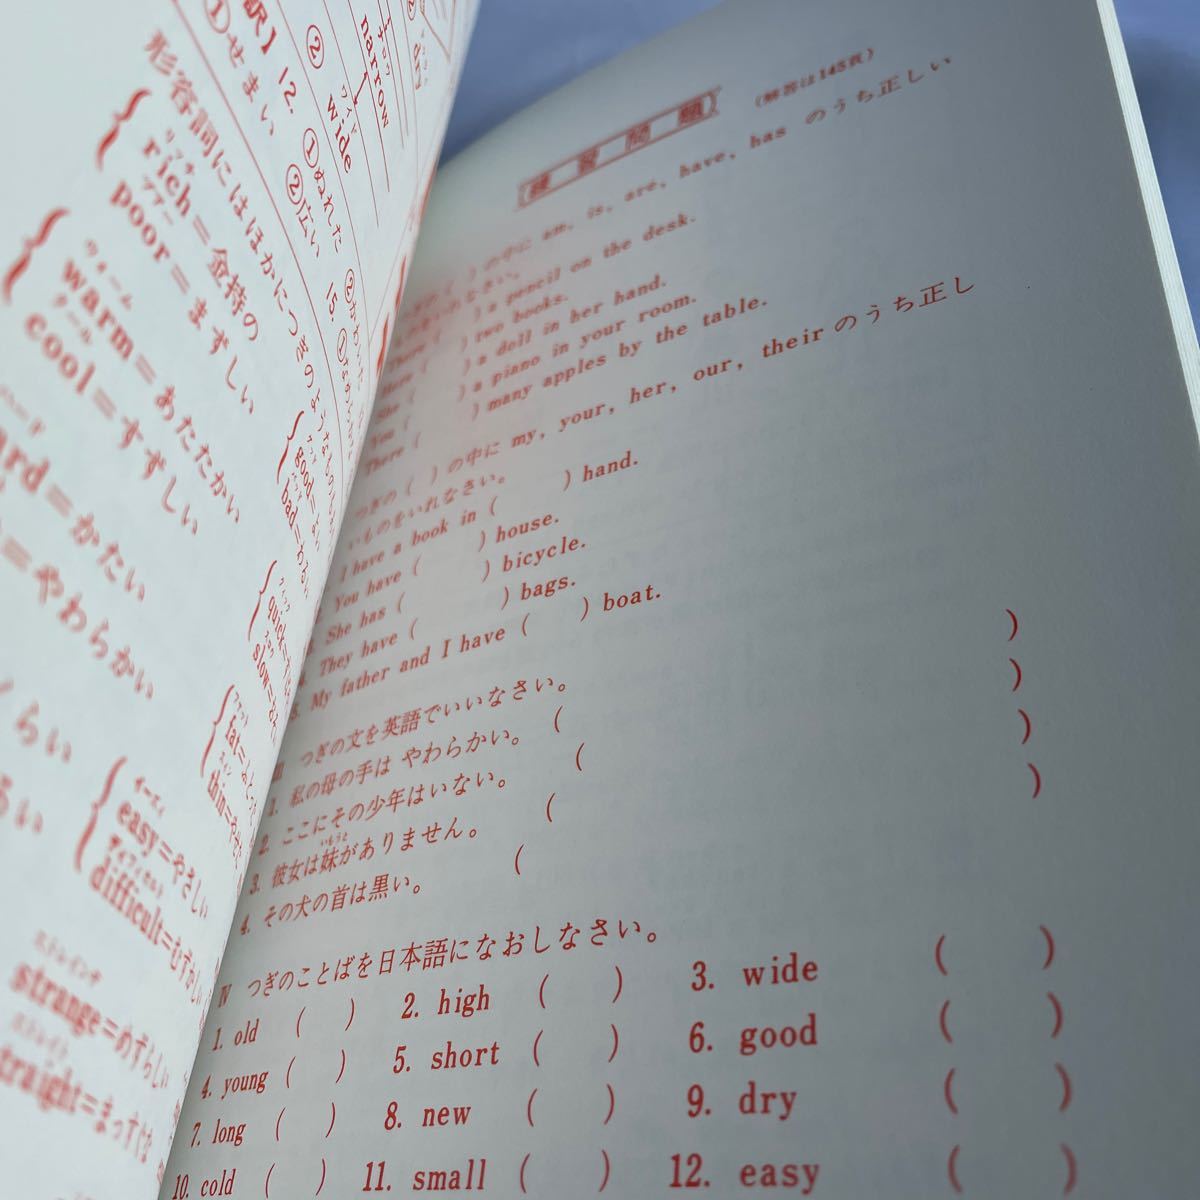 ② wide
ワイド
narrow
ナロウ
② dry
訳】 12. ①ぬれた
①せまい ②広い 15.
形容詞にはほかにつぎのような
リッチ
rich=金持の
プアー
poor=まずしい
ウォーム
warm=あたたかい
クール
cool=すずしい
ard=かたい
=やわらかい
good=よい
bad=わるい
クイック
quick=
スロウ
slow=
ファット
fat=
スィン
thin=
イーズィ
easy=やさしい
ディフィカルト
difficult=むずかしい
ストレインヂ
strange=めずらしい
ストレイト
traight=まっすぐな
練習問題 (解答は145頁)
の( )の中に am, is, are, have, has のうち正しい
いれなさい。
( ) a pencil on the desk.
There ( ) two books.
Here ( ) a doll in her hand.
She ( ) a piano in your room.
You ( ) many apples by the table.
There (
つぎの( )の中に my, your, her, our, their のうち正し
いものをいれなさい。
I have a book in ( ) hand.
You have ( ) house.
She has ( ) bicycle.
They have ( ) bags.
5. My father and I have ( ) boat.
Ⅲ つぎの文を英語でいいなさい。
1. 私の母の手は やわらかい。 ( )
2. ここにその少年はいない。 ( )
いもうと
3. 彼女は妹がありません。 ( )
4. その犬の首は黒い。 ( )
Ⅳ つぎのことばを日本語になおしなさい。
1. old ( ) 2. high ( ) 3. wide ( )
4. young ( ) 5. short ( ) 6. good ( )
7. long ( ) 8. new ( ) 9. dry ( )
10. cold ( ) 11. small ( ) 12. easy ( )